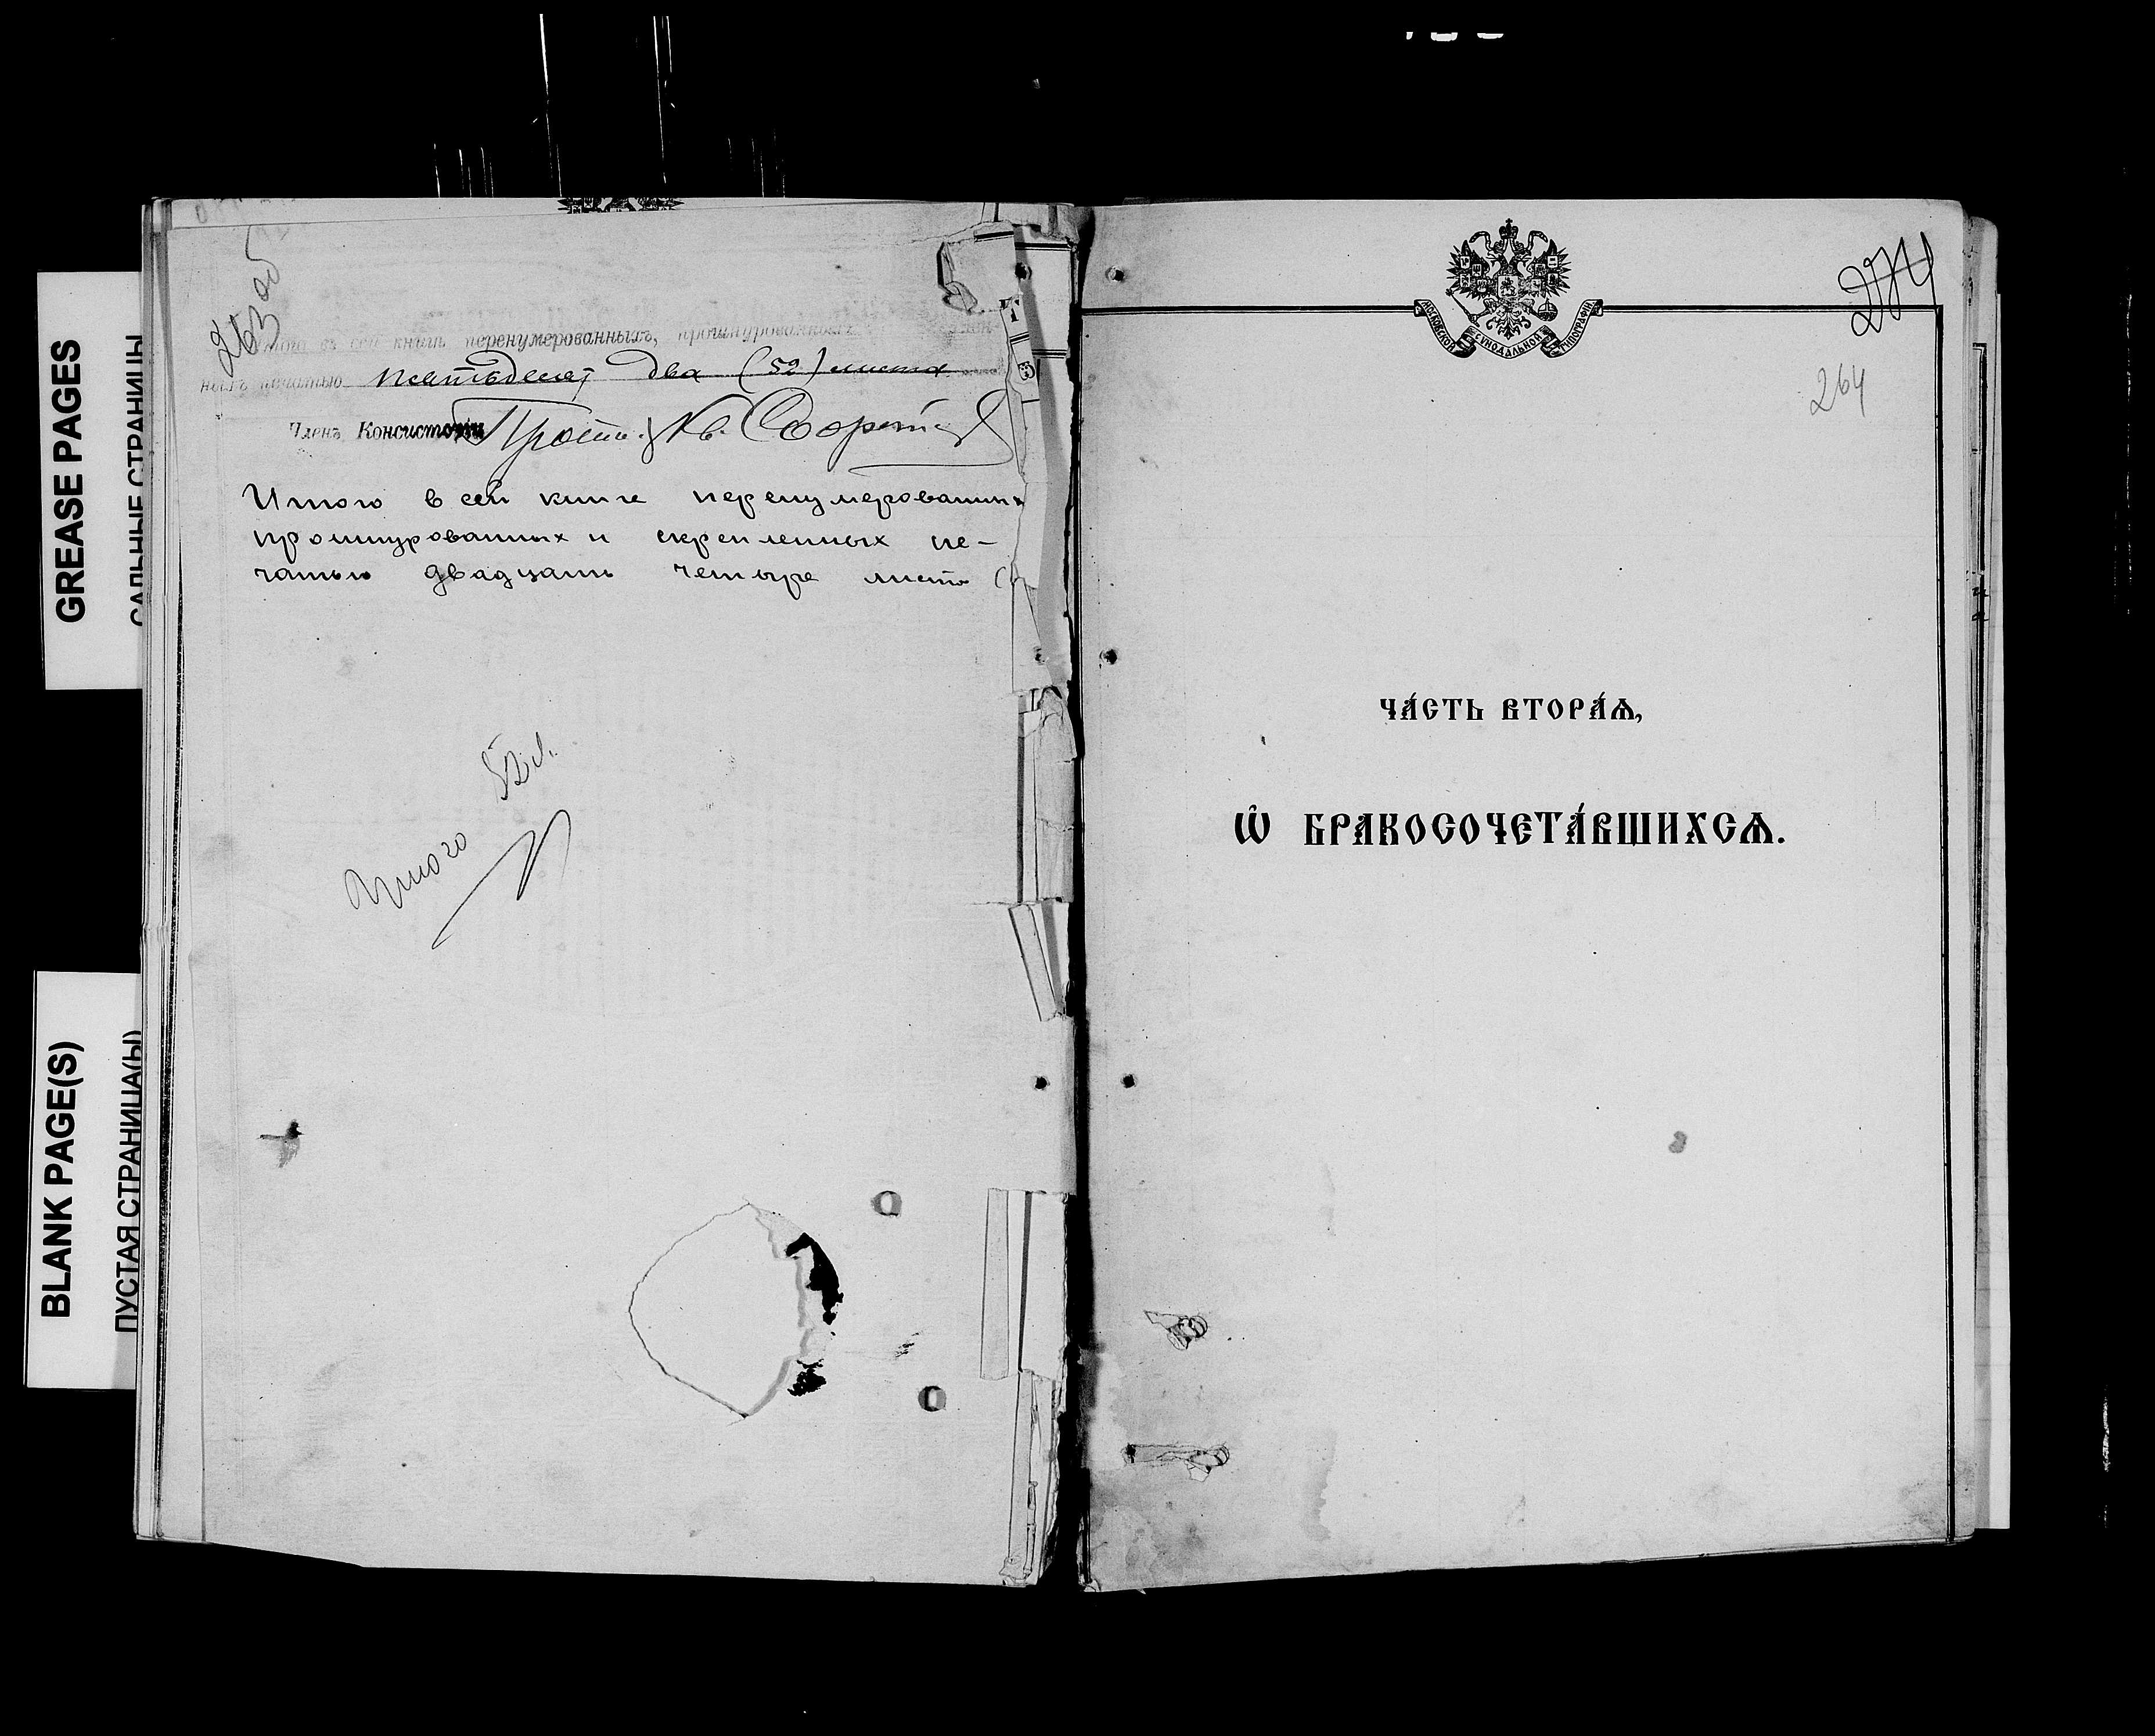 GREASE PAGES
САЛЬНЫЕ СТРАНИЦЫ
BLANK PAGE(S)
ПУСТАЯ СТРАНИЦА(Ы)
263 об
въ сей книгѣ перенумерованныхъ, прошнурованныхъ
печатью пятьдесят два (52) листа
Членъ Консисторіи Прот.
Итого в сей книге перенумерованных
прошнурованных и скрепленных пе-
чатью двадцать четыре листа (
Итого 52 л.
МОСКОВСКОЙ СѴНОДАЛЬНОЙ ТИПОГРАФІИ
274
264
ЧА́СТЬ ВТОРА́Ѧ,
Ѽ БРАКОСОЧЕТА́ВШИХСѦ.